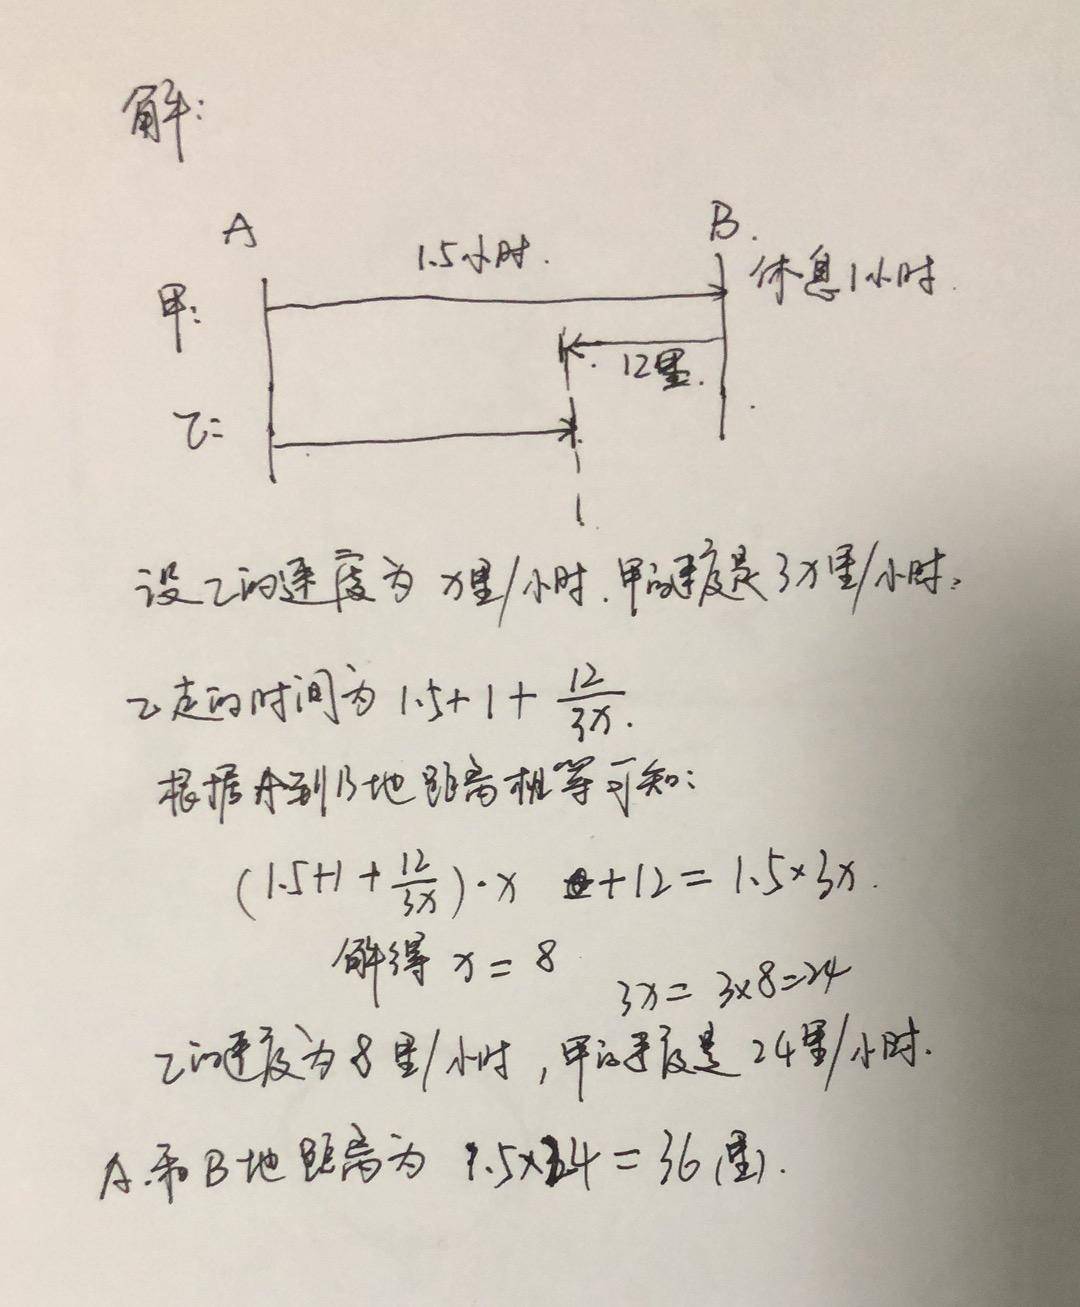 解:
A
B.
1.5小时.
休息1小时.
甲:
12里.
乙:
设乙的速度为x里/小时.甲的速度是3x里/小时.
乙走的时间为1.5+1+\frac{12}{3x}.
根据A到B地距离相等可知:
(1.5+1+\frac{12}{3x})·x +12=1.5×3x.
解得 x=8
3x=3×8=24
乙的速度为8里/小时,甲的速度是24里/小时.
A和B地距离为 1.5×24=36(里).